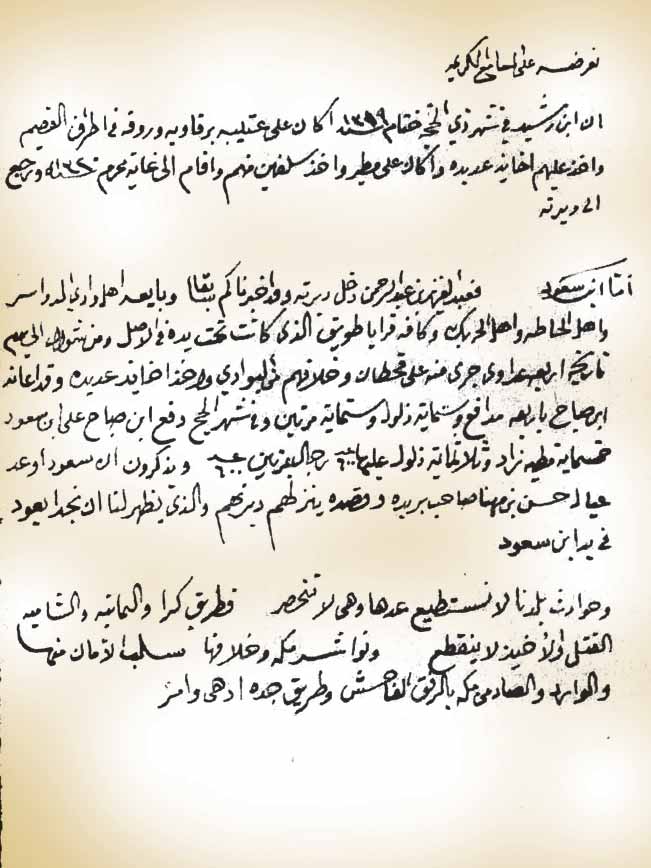 نعرضه على المسامع الكريمه
ان ابن رشيد في شهر ذي الحجه ختام سنه ١٣١٩ اكان على عتيبه برقاويه وروقه في اطراف القصيم
واخذ عليهم اخايذ عديده واكان على مطير واخذ سلفين منهم واقام الى غاية محرم سنه ١٣٢٠ ورجع
الى ديرته
اما ابن سعود فعبد العزيز بن عبد الرحمن دخل ديرته وقد اخبرناكم سابقا وبايعه اهل وادي الدواسر
واهل الحوطه واهل الحريق وكافة قرايا طويق الذي كانت تحت يده في الاصل ومن شوال الى يوم
تاريخه اربعه عداوي جرى منه على قحطان وخلافهم من البوادي واخذ اخايذ عديده وقد اعانه
ابن صباح باربعه مدافع وستماية ذلول وستماية مرتين وفي شهر الحج دفع ابن صباح على ابن سعود
خمسماية مطيه زاد وثلاثماية ذلول عليها ٦٠٠ رجال ويذكرون ان سعود اوعد
عيال حسن بن مهنا صاحب بريده وقصده ينزلهم ديرتهم والذي يظهر لنا ان نجد يعود
في يد ابن سعود
وحوادث بلدنا لا نستطيع عدها وهي لا تنحصر فطريق كرا واليمانيه والشاميه
القتل والاخيذ لا ينقطع ونواشر مكه وخلافها سلب الامان منها
والوارد والصادر من مكه بالرفق الفاحش وطريق جده ادهى وامر